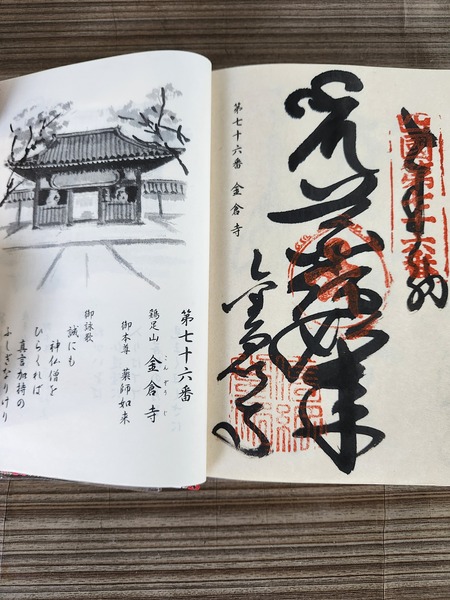 四國第七十六番
薬師如来
金倉寺
第七十六番 金倉寺
第七十六番
鶏足山 金倉寺
こんぞうじ
御本尊 薬師如来
御詠歌
誠にも
神仏僧を
ひらくれば
真言加持の
ふしぎなりけり